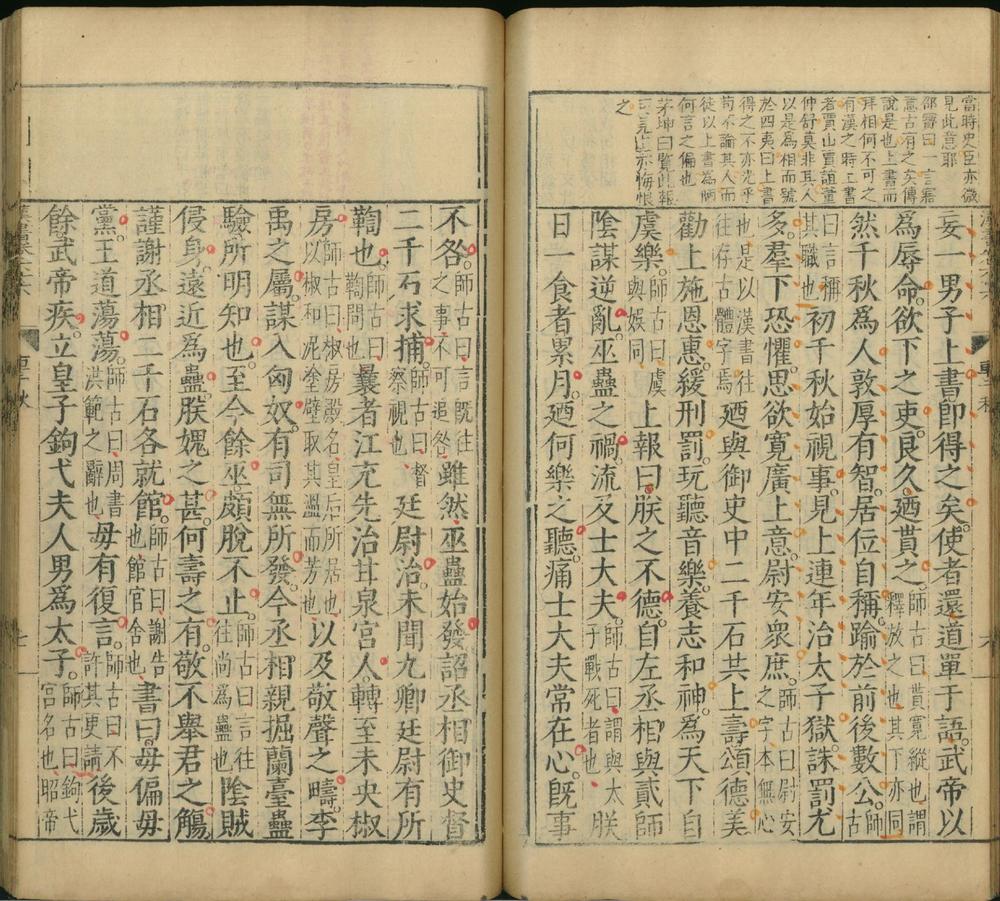 當時史臣亦微
見此意耶
部寶曰一言寤
意古有之矣傳
說是也上書而
拜相何不可之
有漢之時上書
者賈山賈誼董
仲舒莫非其人
以是爲相而號
於四夷曰上書
得之不亦光乎
苟不論其人而
徒以上書爲病
何言之偏也
茅坤曰覽此報
亦悔恨
之
妄一男子上書即得之矣使者還道單于語武帝以
爲辱命欲下之吏良久廼貰之師古曰貰寬縱也謂釋放之也其下亦同
然千秋爲人敦厚有智居位自稱踰於前後數公師古曰言稱其職也
初千秋始視事見上連年治太子獄誅罰尤
多羣下恐懼思欲寬廣上意尉安衆庶師古曰尉安之字本無心
也是以漢書往往存古體字焉廼與御史中二千石共上壽頌德美
勸上施恩惠緩刑罰玩聽音樂養志和神爲天下自
虞樂師古曰虞與娛同上報曰朕之不德自左丞相與貳師
陰謀逆亂巫蠱之禍流及士大夫師古曰謂與太子戰死者也朕
日一食者累月廼何樂之聽痛士大夫常在心既事
不咎師古曰言既往之事不可追咎雖然巫蠱始發詔丞相御史督
二千石求捕師古曰督察視也廷尉治未聞九卿廷尉有所
鞫也師古曰鞫問也曩者江充先治甘泉宮人轉至未央椒
房師古曰椒房殿名皇后所居也以椒和泥塗壁取其溫而芳也以及敬聲之疇李
禹之屬謀入匈奴有司無所發今丞相親掘蘭臺蠱
驗所明知也至今餘巫頗脫不止師古曰言往往尚爲蠱也陰賊
侵身遠近爲蠱朕媿之甚何壽之有敬不舉君之觴
謹謝丞相二千石各就館師古曰謝告也館官舍也書曰毋偏毋
黨王道蕩蕩師古曰周書洪範之辭也毋有復言師古曰不許其更請後歲
餘武帝疾立皇子鉤弋夫人男爲太子師古曰鉤弋宮名也昭帝